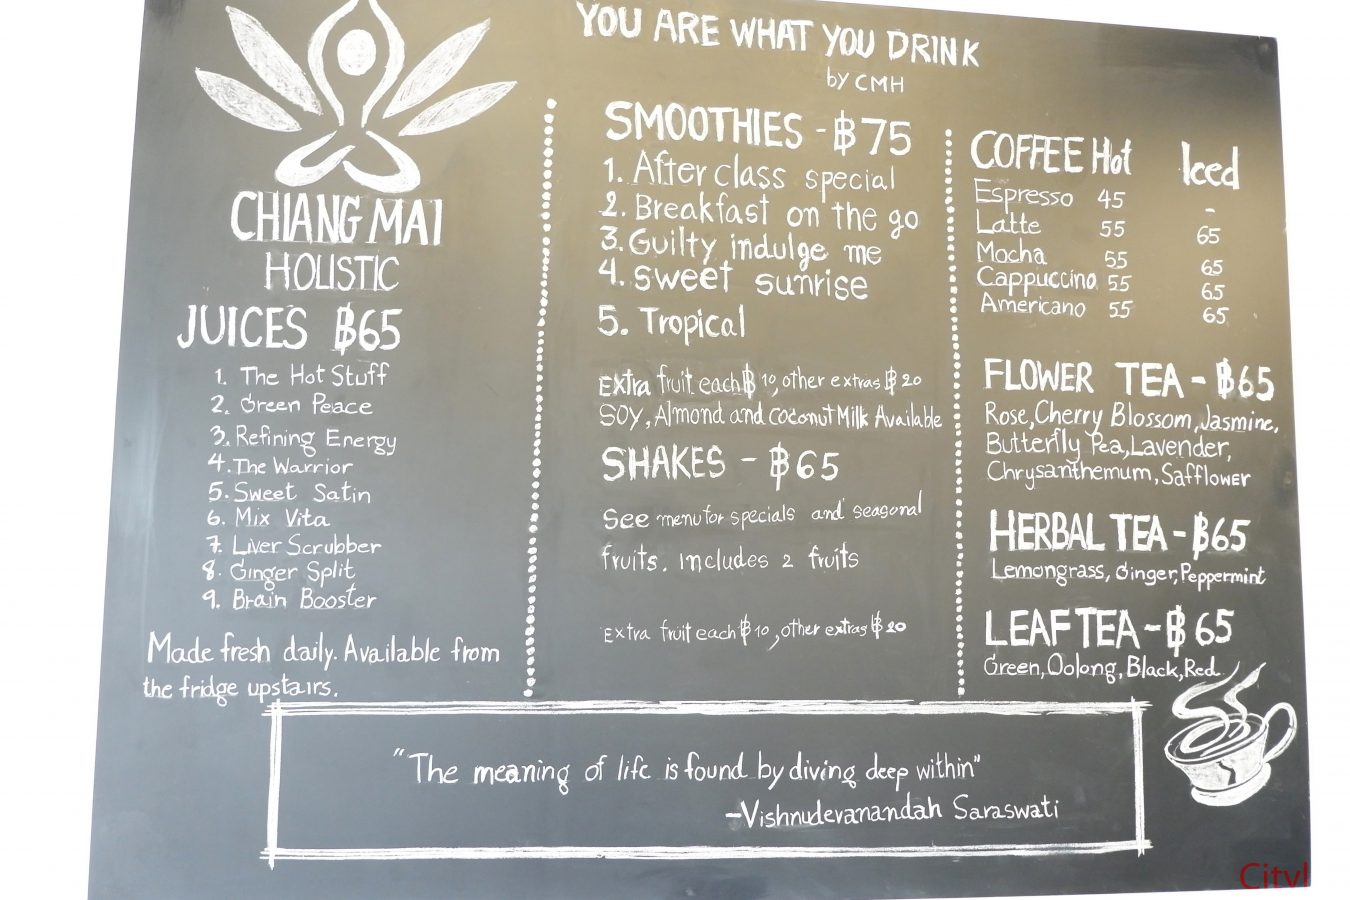 YOU ARE WHAT YOU DRINK
by CMH
CHIANG MAI
HOLISTIC
JUICES ฿65
1. The Hot Stuff
2. Green Peace
3. Refining Energy
4. The Warrior
5. Sweet Satin
6. Mix Vita
7. Liver Scrubber
8. Ginger Split
9. Brain Booster
Made fresh daily. Available from
the fridge upstairs.
SMOOTHIES - ฿75
1. After class special
2. Breakfast on the go
3. Guilty indulge me
4. Sweet sunrise
5. Tropical
Extra fruit each ฿ 10, other extras ฿ 20
SOY, Almond and coconut Milk Available
SHAKES - ฿65
See menu for specials and seasonal
fruits. includes 2 fruits
Extra fruit each ฿ 10, other extras ฿ 20
COFFEE Hot Iced
Espresso 45 -
Latte 55 65
Mocha 55 65
Cappuccino 55 65
Americano 55 65
FLOWER TEA - ฿65
Rose, Cherry Blossom, Jasmine,
Butterfly Pea, Lavender,
Chrysanthemum, Safflower
HERBAL TEA - ฿65
Lemongrass, Ginger, Peppermint
LEAF TEA - ฿65
Green, Oolong, Black, Red
"The meaning of life is found by diving deep within"
-Vishnudevanandah Saraswati